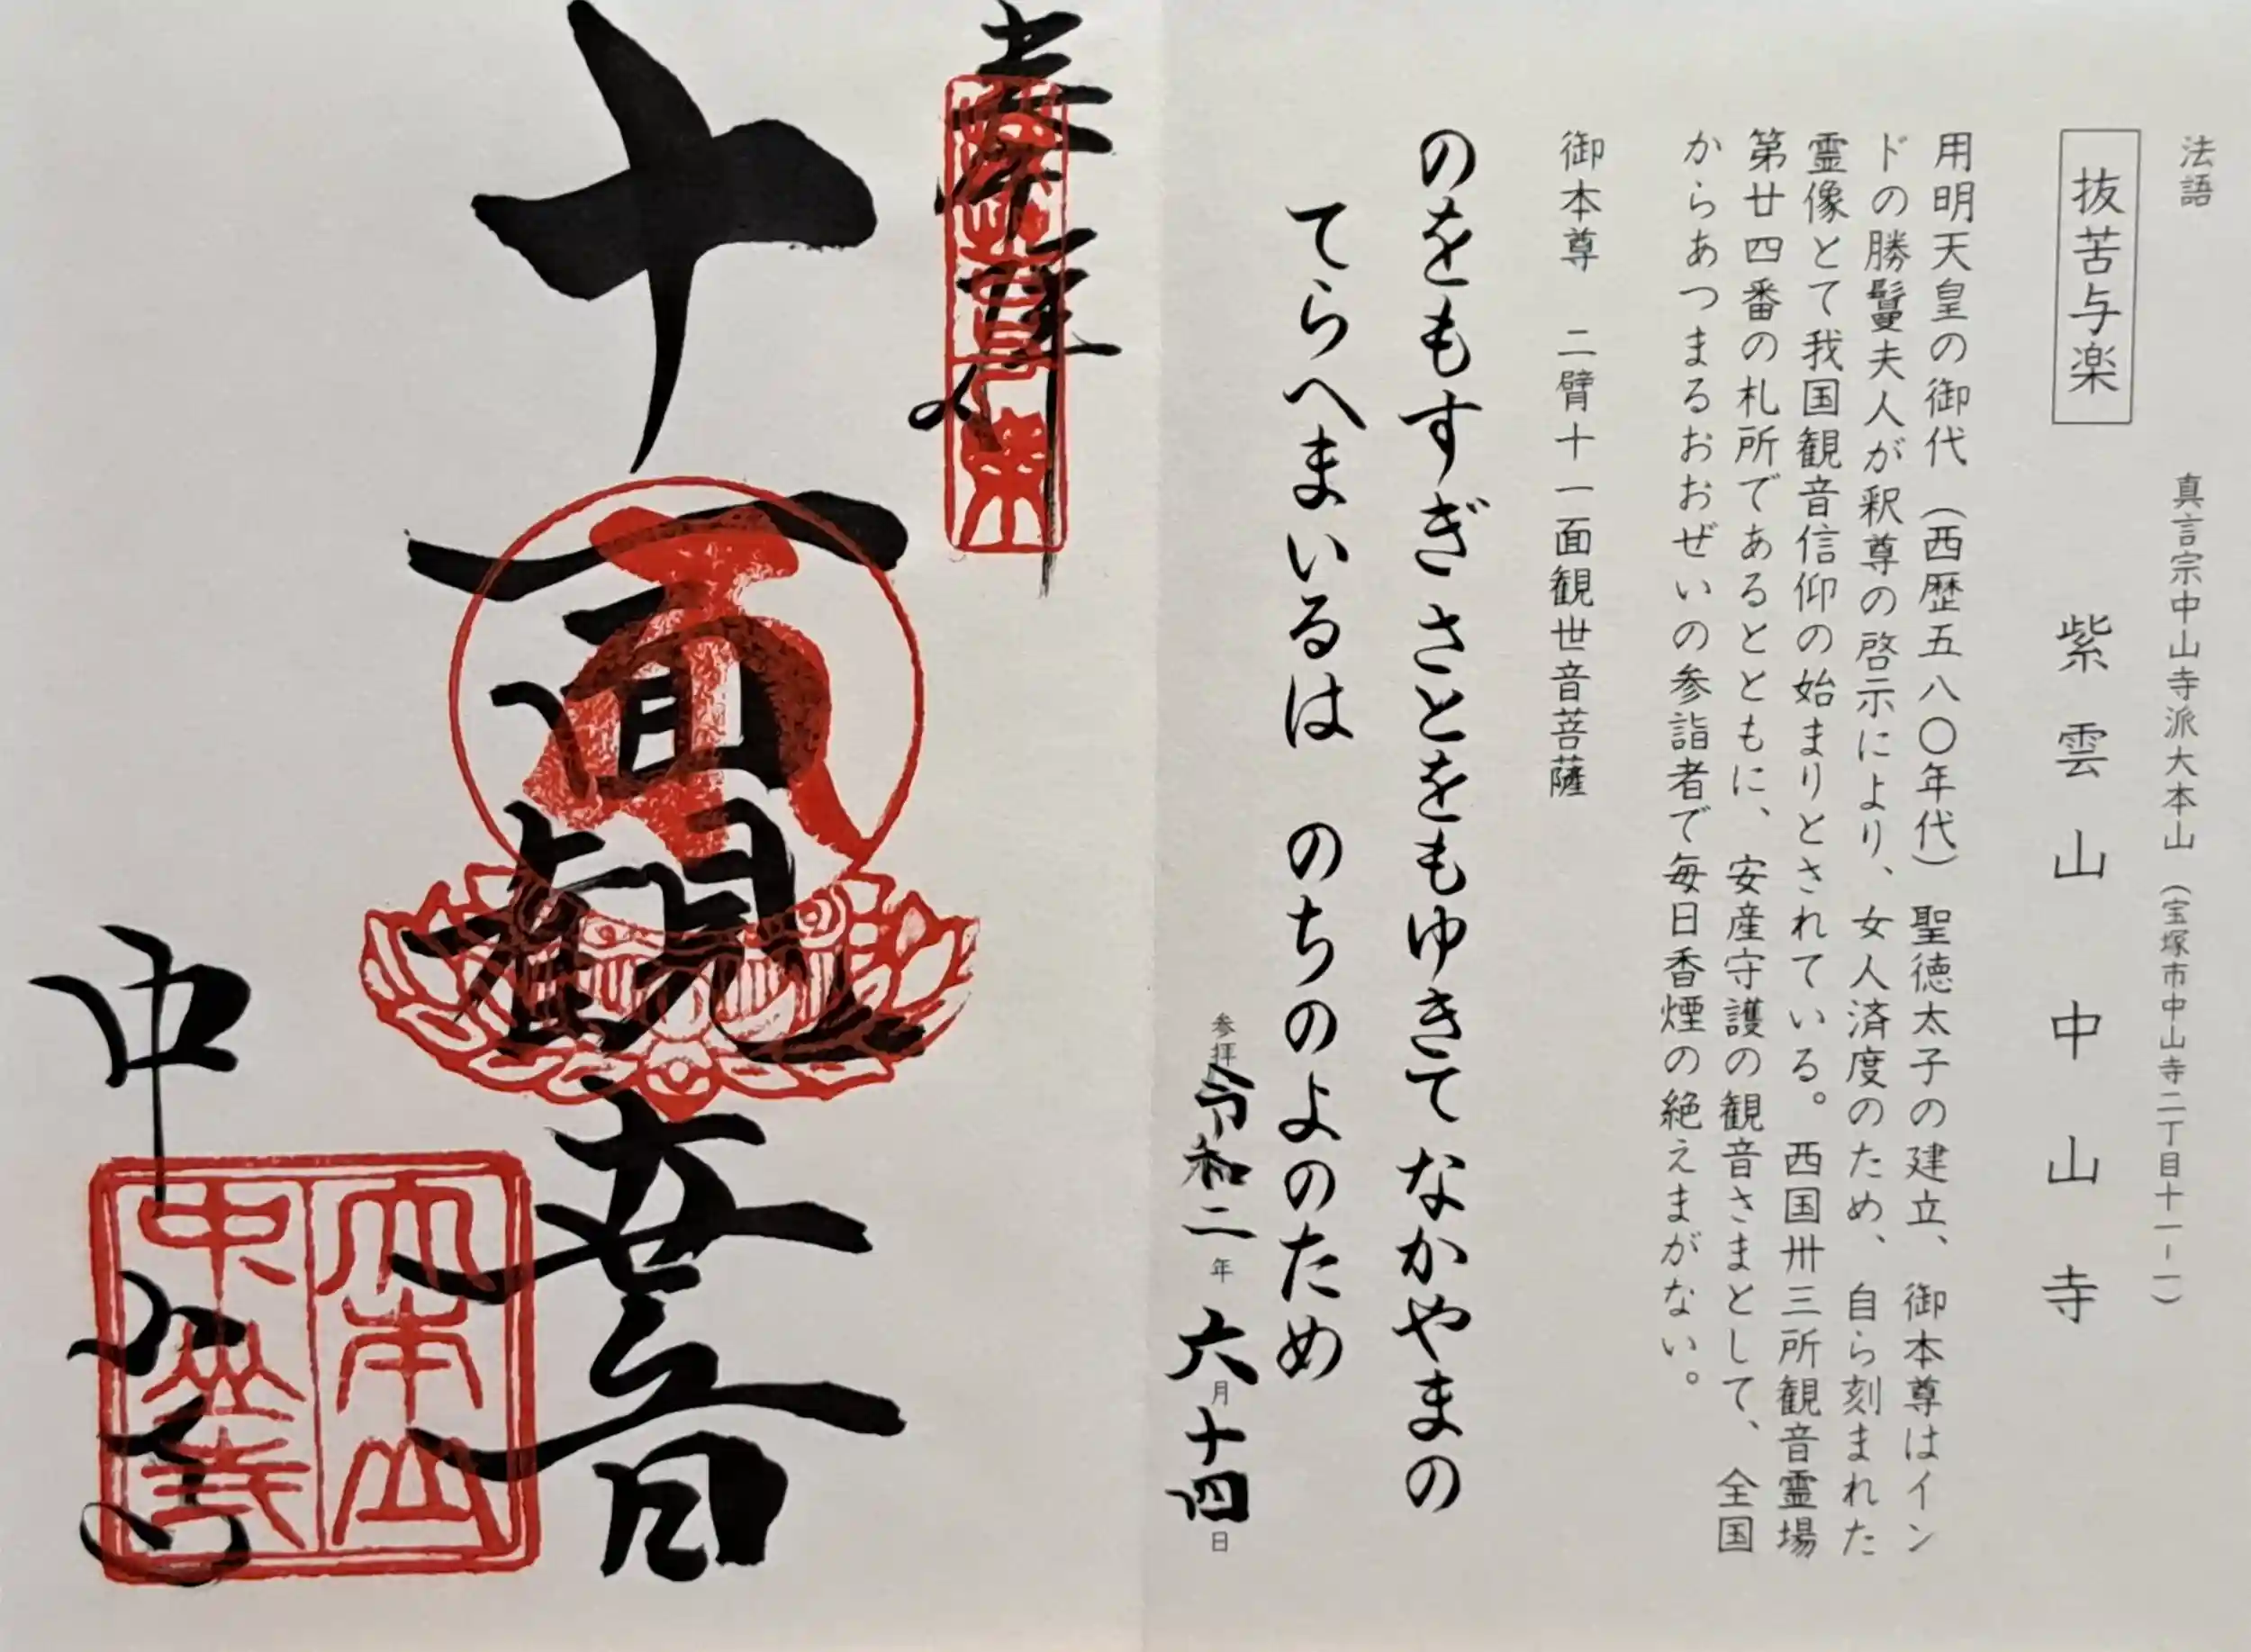 法語
真言宗中山寺派大本山（宝塚市中山寺二丁目十一-一）
抜苦与楽
紫雲山中山寺
用明天皇の御代（西歴五八〇年代）聖徳太子の建立、御本尊はイン
ドの勝鬘夫人が釈尊の啓示により、女人済度のため、自ら刻まれた
霊像とて我国観音信仰の始まりとされている。西国卅三所観音霊場
第廿四番の札所であるとともに、安産守護の観音さまとして、全国
からあつまるおおぜいの参詣者で毎日香煙の絶えまがない。
御本尊　二臂十一面観世音菩薩
のをもすぎさとをもゆきてなかやまの
てらへまいるは　のちのよのため
参拝令和二年六月十四日
奉拝
十一面観音
中山寺
大本山
中山寺